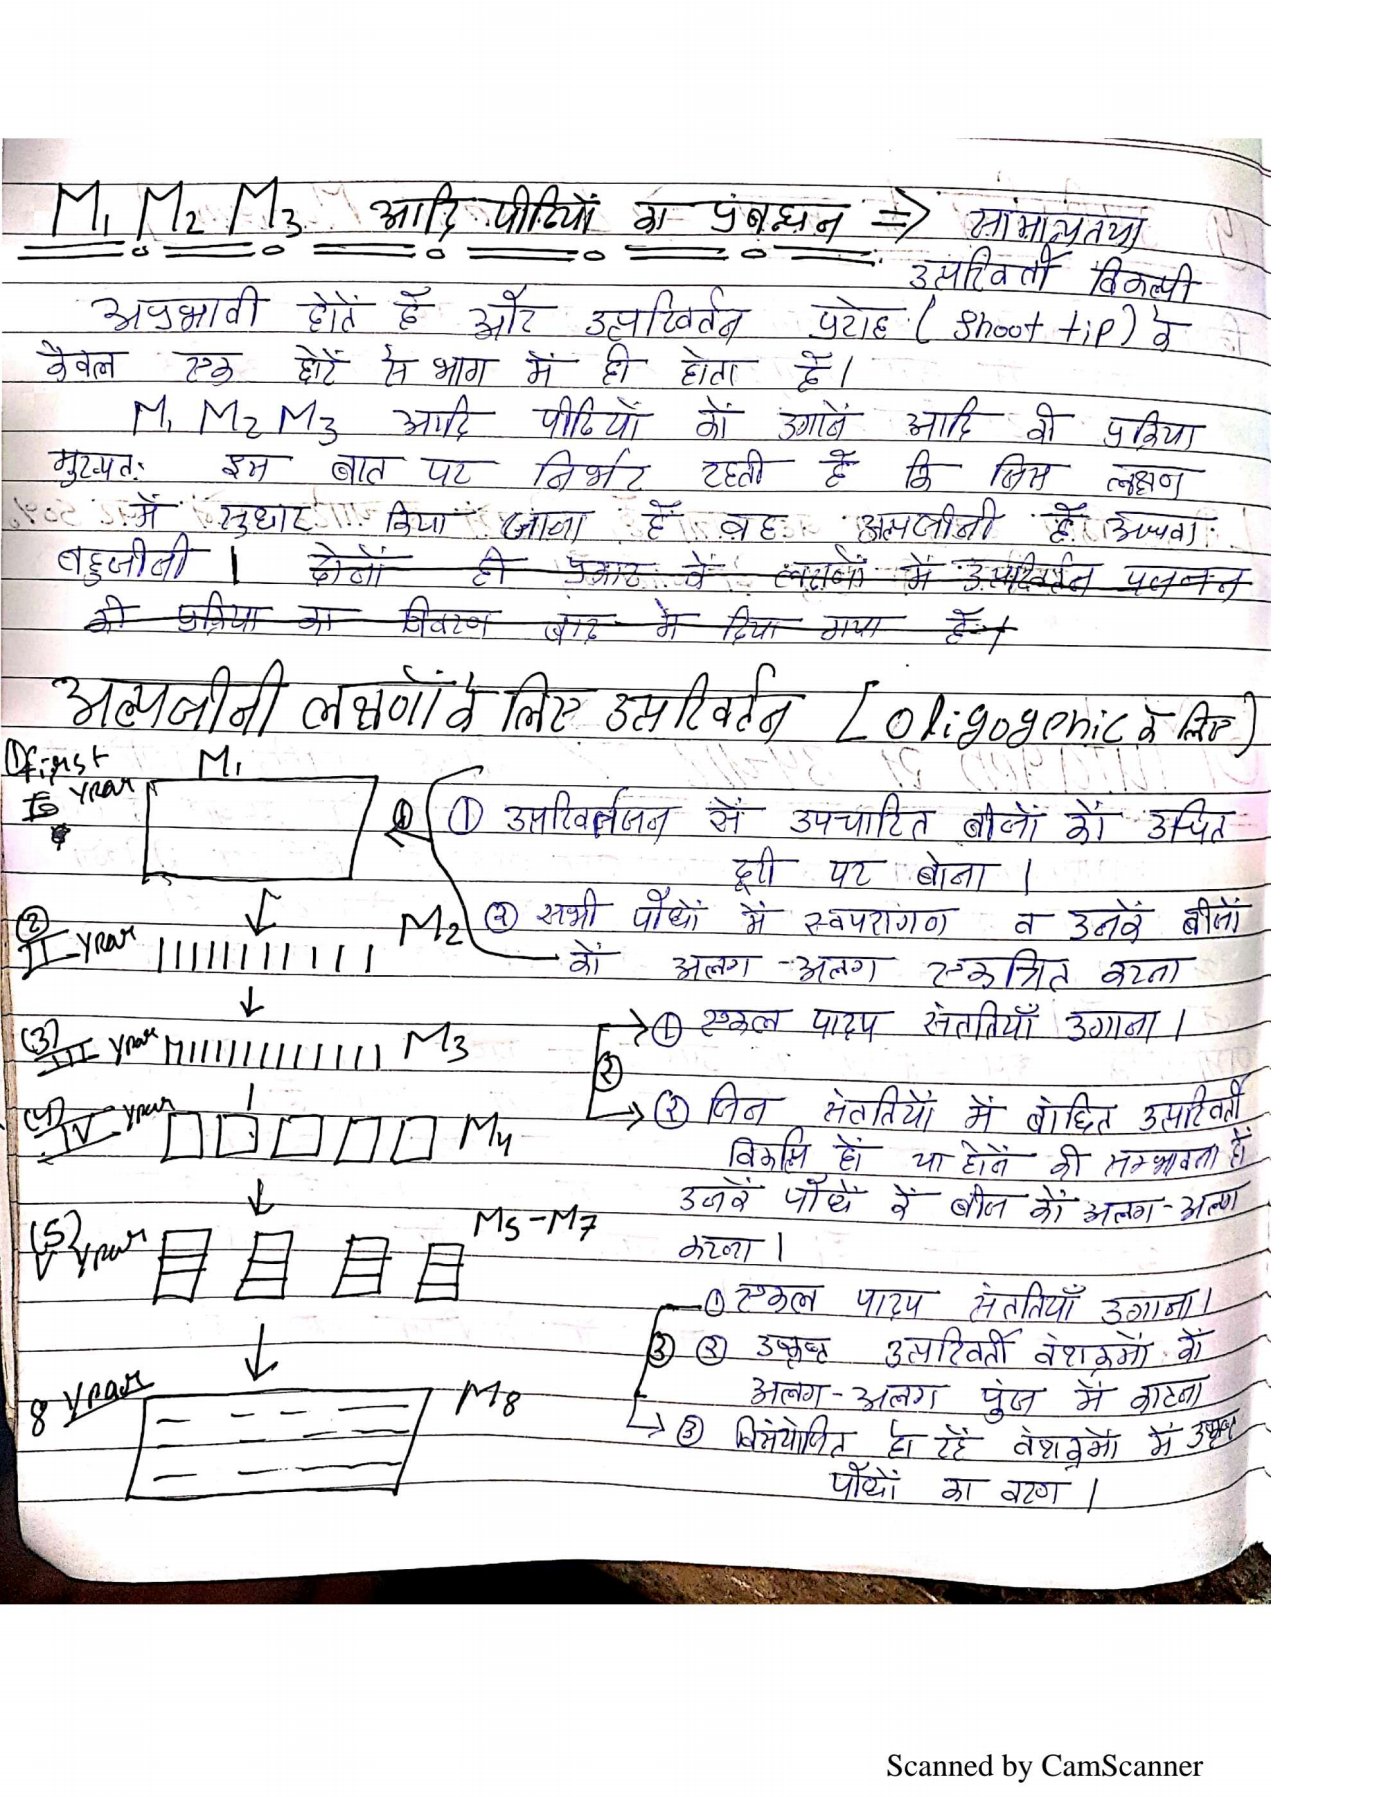 M₁ M₂ M₃ आदि पीढियों का प्रंबधन ⇒ सामान्यतया
उत्परिवर्ती विकल्पी
अप्रभावी होतें हैं और उत्परिवर्तन प्ररोह (Shoot tip) के
केवल एक छोटें से भाग में ही होता हैं।
M₁ M₂ M₃ आदि पीढियों कों उगानें आदि की प्रक्रिया
मुख्यतः इस बात पर निर्भर रहती हैं कि जिस लक्षण
में सुधार किया जाना हैं वह अल्पजीनी हैं अथवा
बहुजीनी । दोनों ही प्रकार के लक्षणों में उत्परिवर्तन प्रजनन
की प्रक्रिया का विवरण बाद में दिया गया हैं।
अल्पजीनी लक्षणों के लिए उत्परिवर्तन [Oligogenic के लिए)
① first year M₁
① उत्परिवर्तजन सें उपचारित बीजों कों उचित
दूरी पर बोना ।
② II year M₂ ② सभी पौधों में स्वपरागण व उनकें बीजों
कों अलग-अलग एकत्रित करना
(3) III year M₃ ① एकल पादप संततियाँ उगाना।
②
(4) IV year M₄ ② जिन संततियों में वांछित उत्परिवर्ती
विकल्पी हों या होनें की सम्भावना हों
उनकें पौधें कें बीज कों अलग-अलग
करना।
(5) V year M5-M7
① एकल पादप संततियाँ उगाना।
③ ② उत्कृष्ट उत्परिवर्ती वंशक्रमों कों
अलग-अलग पुंज में काटना
8 year M8 ③ विसंयोजित हो रहें वंशक्रमों में उत्कृष्ट
पौधों का वरण।
Scanned by CamScanner